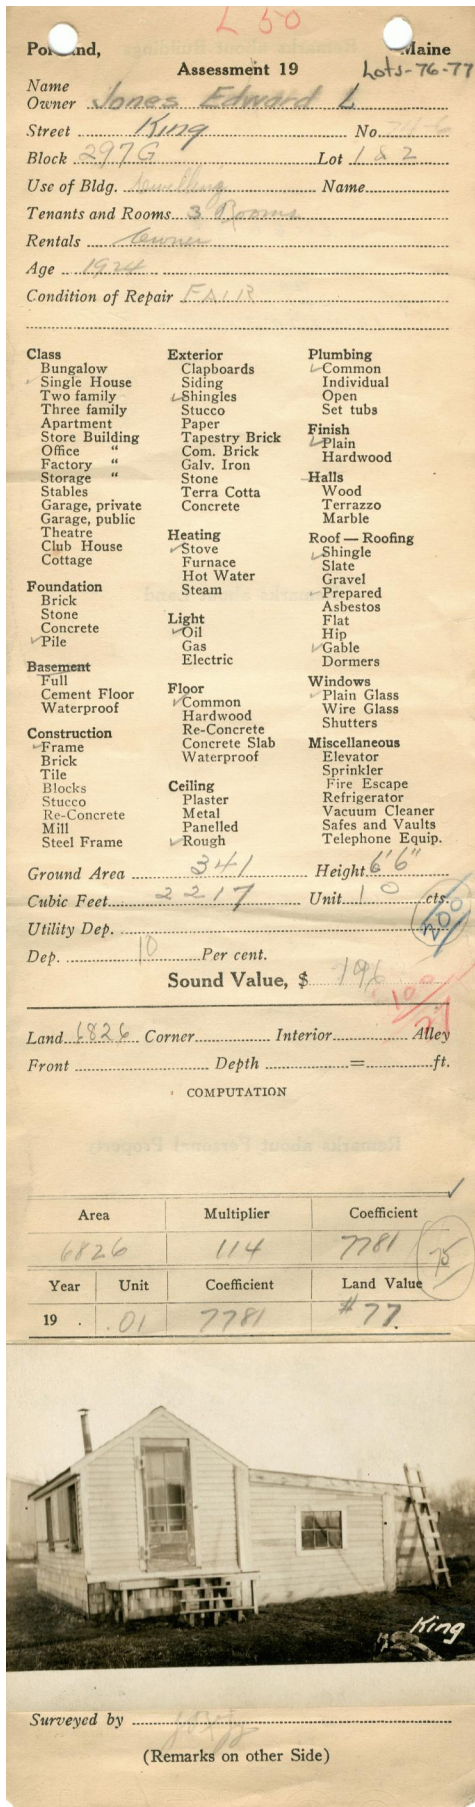 L 50
Portland, Maine
Assessment 19 Lots-76-77
Name
Owner Jones Edward L
Street King No.
Block 297G Lot 1 & 2
Use of Bldg. dwelling Name
Tenants and Rooms 3 Rooms
Rentals Owner
Age 1924
Condition of Repair FAIR
Class
Bungalow
Single House
Two family
Three family
Apartment
Store Building
Office "
Factory "
Storage "
Stables
Garage, private
Garage, public
Theatre
Club House
Cottage
Foundation
Brick
Stone
Concrete
Pile
Basement
Full
Cement Floor
Waterproof
Construction
Frame
Brick
Tile
Blocks
Stucco
Re-Concrete
Mill
Steel Frame
Exterior
Clapboards
Siding
Shingles
Stucco
Paper
Tapestry Brick
Com. Brick
Galv. Iron
Stone
Terra Cotta
Concrete
Heating
Stove
Furnace
Hot Water
Steam
Light
Oil
Gas
Electric
Floor
Common
Hardwood
Re-Concrete
Concrete Slab
Waterproof
Ceiling
Plaster
Metal
Panelled
Rough
Plumbing
Common
Individual
Open
Set tubs
Finish
Plain
Hardwood
Halls
Wood
Terrazzo
Marble
Roof — Roofing
Shingle
Slate
Gravel
Prepared
Asbestos
Flat
Hip
Gable
Dormers
Windows
Plain Glass
Wire Glass
Shutters
Miscellaneous
Elevator
Sprinkler
Fire Escape
Refrigerator
Vacuum Cleaner
Safes and Vaults
Telephone Equip.
Ground Area 341 Height 6'6"
Cubic Feet 2217 Unit 10 cts.
200
Utility Dep.
Dep. 10 Per cent.
Sound Value, $ 196
100
Land 6826 Corner Interior Alley
Front Depth = ft.
COMPUTATION
Area Multiplier Coefficient
6826 114 7781
75
Year Unit Coefficient Land Value
19 .01 7781 #77.
King
Surveyed by
(Remarks on other Side)